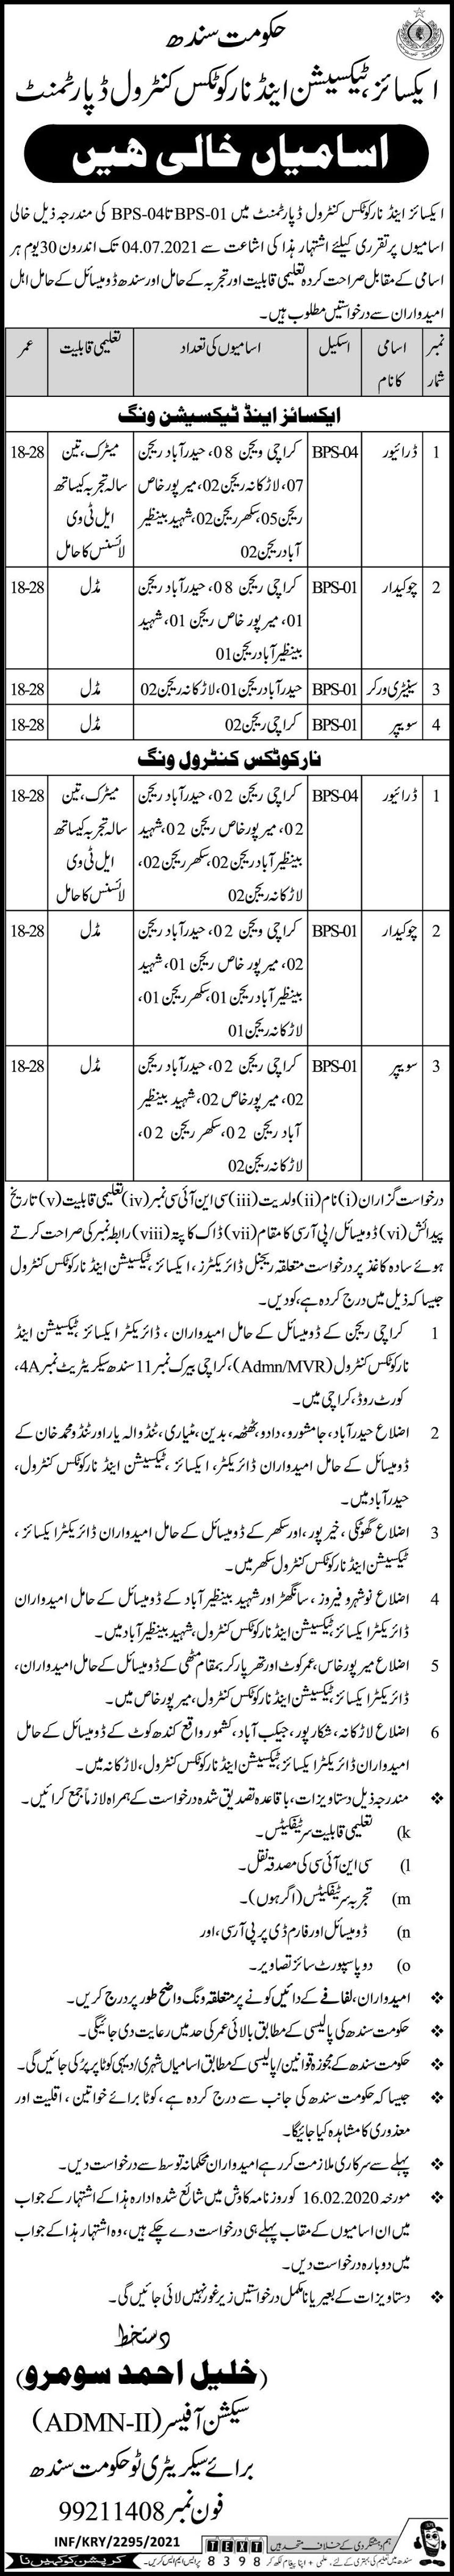 حکومت سندھ
ایکسائز، ٹیکسیشن اینڈ نارکوٹکس کنٹرول ڈپارٹمنٹ
اسامیاں خالی ھیں
ایکسائز اینڈ نارکوٹکس کنٹرول ڈپارٹمنٹ میں BPS-01 تا BPS-04 کی مندرجہ ذیل خالی
اسامیوں پر تقرری کیلئے اشتہار ہذا کی اشاعت سے 04.07.2021 تک اندرون 30 یوم ہر
اسامی کے مقابل صراحت کردہ تعلیمی قابلیت اور تجربہ کے حامل اور سندھ ڈومیسائل کے حامل اہل
امیدواران سے درخواستیں مطلوب ہیں۔
نمبر شمار | اسامی کا نام | اسکیل | اسامیوں کی تعداد | تعلیمی قابلیت | عمر
ایکسائز اینڈ ٹیکسیشن ونگ
1 | ڈرائیور | BPS-04 | کراچی ویجن 08، حیدرآباد ریجن 07، لاڑکانہ ریجن 02، میرپورخاص ریجن 05، سکھر ریجن 02، شہید بینظیر آباد ریجن 02 | میٹرک، تین سالہ تجربہ کیساتھ ایل ٹی وی لائسنس کا حامل | 18-28
2 | چوکیدار | BPS-01 | کراچی ریجن 08، حیدرآباد ریجن 01، میرپور خاص ریجن 01، شہید بینظیر آباد ریجن 01 | مڈل | 18-28
3 | سینیٹری ورکر | BPS-01 | حیدرآباد ریجن 01، لاڑکانہ ریجن 02 | مڈل | 18-28
4 | سویپر | BPS-01 | کراچی ریجن 02 | مڈل | 18-28
نارکوٹکس کنٹرول ونگ
1 | ڈرائیور | BPS-04 | کراچی ریجن 02، حیدرآباد ریجن 02، میرپور خاص ریجن 02، شہید بینظیر آباد ریجن 02، سکھر ریجن 02، لاڑکانہ ریجن 02 | میٹرک، تین سالہ تجربہ کیساتھ ایل ٹی وی لائسنس کا حامل | 18-28
2 | چوکیدار | BPS-01 | کراچی ویجن 02، حیدرآباد ریجن 02، میرپور خاص ریجن 01، شہید بینظیر آباد ریجن 01، سکھر ریجن 01، لاڑکانہ ریجن 01 | مڈل | 18-28
3 | سویپر | BPS-01 | کراچی ریجن 02، حیدرآباد ریجن 02، میرپور خاص 02، شہید بینظیر آباد ریجن 02، سکھر ریجن 02، لاڑکانہ ریجن 02 | مڈل | 18-28
درخواست گزاران (i) نام (ii) ولدیت (iii) سی این آئی سی نمبر (iv) تعلیمی قابلیت (v) تاریخ
پیدائش (vi) ڈومیسائل/پی آر سی کا مقام (vii) ڈاک کا پتہ (viii) رابطہ نمبر کی صراحت کرتے
ہوئے سادہ کاغذ پر درخواست متعلقہ ریجنل ڈائریکٹرز، ایکسائز، ٹیکسیشن اینڈ نارکوٹکس کنٹرول
جیسا کہ ذیل میں درج کردہ ہے، کو دیں۔
1 کراچی ریجن کے ڈومیسائل کے حامل امیدواران، ڈائریکٹر ایکسائز، ٹیکسیشن اینڈ
نارکوٹکس کنٹرول (Admn/MVR)، کراچی بیرک نمبر 11 سندھ سیکریٹریٹ نمبر 4A،
کورٹ روڈ، کراچی میں۔
2 اضلاع حیدرآباد، جامشورو، دادو، ٹھٹھہ، بدین، مٹیاری، ٹنڈو الہ یار اور ٹنڈو محمد خان کے
ڈومیسائل کے حامل امیدواران ڈائریکٹر، ایکسائز، ٹیکسیشن اینڈ نارکوٹکس کنٹرول،
حیدرآباد میں۔
3 اضلاع گھوٹکی، خیرپور، اور سکھر کے ڈومیسائل کے حامل امیدواران ڈائریکٹر ایکسائز،
ٹیکسیشن اینڈ نارکوٹکس کنٹرول سکھر میں۔
4 اضلاع نوشہرو فیروز، سانگھڑ اور شہید بینظیر آباد کے ڈومیسائل کے حامل امیدواران
ڈائریکٹر ایکسائز، ٹیکسیشن اینڈ نارکوٹکس کنٹرول، شہید بینظیر آباد میں۔
5 اضلاع میرپور خاس، عمر کوٹ اور تھرپارکر بمقام مٹھی کے ڈومیسائل کے حامل امیدواران،
ڈائریکٹر ایکسائز، ٹیکسیشن اینڈ نارکوٹکس کنٹرول، میرپور خاص میں۔
6 اضلاع لاڑکانہ، شکارپور، جیکب آباد، کشمور واقع کندھ کوٹ کے ڈومیسائل کے حامل
امیدواران ڈائریکٹر ایکسائز، ٹیکسیشن اینڈ نارکوٹکس کنٹرول، لاڑکانہ میں۔
❖ مندرجہ ذیل دستاویزات، باقاعدہ تصدیق شدہ درخواست کے ہمراہ لازماً جمع کرائیں۔
k) تعلیمی قابلیت سرٹیفکیٹس۔
l) سی این آئی سی کی مصدقہ نقل۔
m) تجربہ سرٹیفکیٹس (اگر ہوں)۔
n) ڈومیسائل اور فارم ڈی پر پی آر سی، اور
o) دو پاسپورٹ سائز تصاویر۔
❖ امیدواران، لفافے کے دائیں کونے پر متعلقہ ونگ واضح طور پر درج کریں۔
❖ حکومت سندھ کی پالیسی کے مطابق بالائی عمر کی حد میں رعایت دی جائیگی۔
❖ حکومت سندھ کے مجوزہ قوانین/پالیسی کے مطابق اسامیاں شہری/دیہی کوٹا پر پُر کی جائیں گی۔
❖ جیسا کہ حکومت سندھ کی جانب سے درج کردہ ہے، کوٹا برائے خواتین، اقلیت اور
معذوری کا مشاہدہ کیا جائیگا۔
❖ پہلے سے سرکاری ملازمت کر رہے امیدواران محکمانہ توسط سے درخواست دیں۔
❖ مورخہ 16.02.2020 کو روزنامہ کاوش میں شائع شدہ ادارہ ہذا کے اشتہار کے جواب
میں ان اسامیوں کے مقاب پہلے ہی درخواست دے چکے ہیں، وہ اشتہار ہذا کے جواب
میں دوبارہ درخواست دیں۔
❖ دستاویزات کے بغیر یا نامکمل درخواستیں زیر غور نہیں لائی جائیں گی۔
دستخط
(خلیل احمد سومرو)
سیکشن آفیسر (ADMN-II)
برائے سیکریٹری ٹو حکومت سندھ
فون نمبر 99211408
INF/KRY/2295/2021
ہم دہشتگردی کے خلاف متحد ہیں
TEXT
سندھ میں تعلیم کی بہتری کے لئے، علمی + اپنا پیغام لکھ کر 8398 پر ایس ایم ایس کریں۔
کرپشن کو کہیں نا